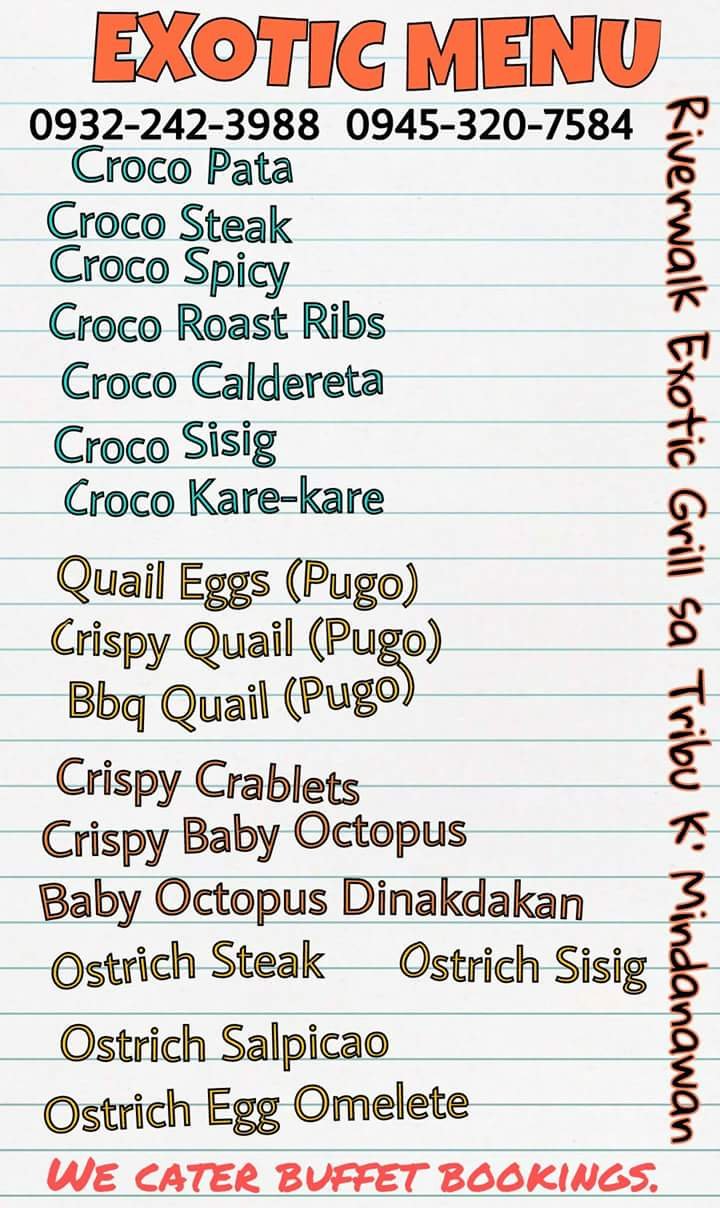 EXOTIC MENU
0932-242-3988 0945-320-7584
Croco Pata
Croco Steak
Croco Spicy
Croco Roast Ribs
Croco Caldereta
Croco Sisig
Croco Kare-kare
Quail Eggs (Pugo)
Crispy Quail (Pugo)
Bbq Quail (Pugo)
Crispy Crablets
Crispy Baby Octopus
Baby Octopus Dinakdakan
Ostrich Steak Ostrich Sisig
Ostrich Salpicao
Ostrich Egg Omelete
WE CATER BUFFET BOOKINGS.
Riverwalk Exotic Grill sa Tribu K' Mindanawan